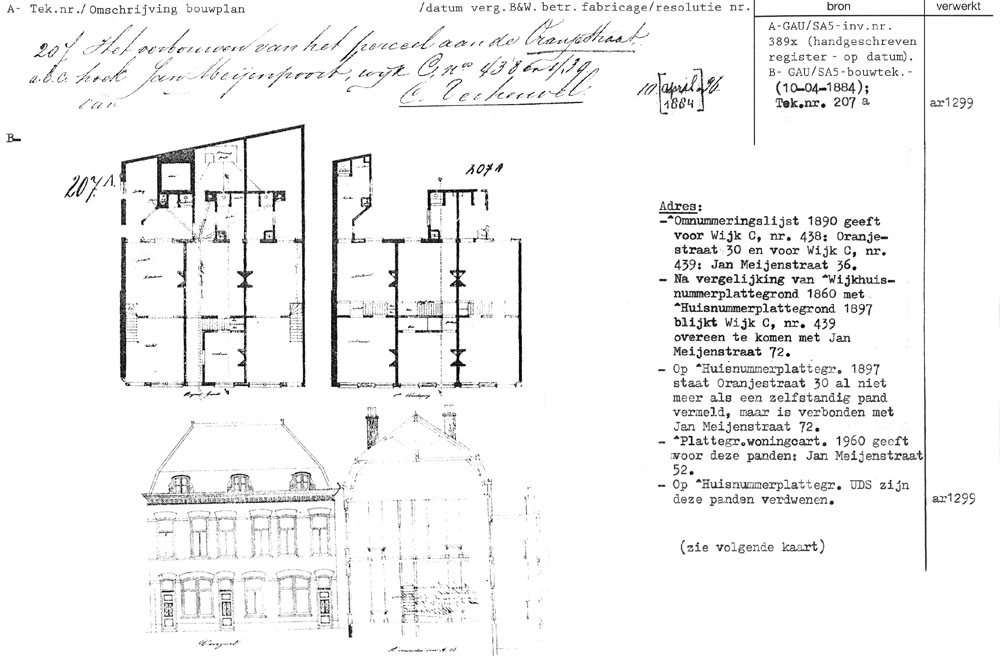 A- Tek.nr./ Omschrijving bouwplan /datum verg.B&W. betr. fabricage/resolutie nr. bron verwerkt
207 Het verbouwen van het perceel aan de Oranjestraat
a.b.c. hoek Jan Meijenpoort, wijk C, nos 438 en 439
van C. Verheuvel. 10 [april 1884] 96.
A-GAU/SA5-inv.nr.
389x (handgeschreven
register - op datum).
B- GAU/SA5-bouwtek.-
(10-04-1884);
Tek.nr. 207 a
ar1299
B-
207 A.
207 A
Adres:
-^Omnummeringslijst 1890 geeft
voor Wijk C, nr. 438: Oranje-
straat 30 en voor Wijk C, nr.
439: Jan Meijenstraat 36.
- Na vergelijking van ^Wijkhuis-
nummerplattegrond 1860 met
^Huisnummerplattegrond 1897
blijkt Wijk C, nr. 439
overeen te komen met Jan
Meijenstraat 72.
- Op ^Huisnummerplattegr. 1897
staat Oranjestraat 30 al niet
meer als een zelfstandig pand
vermeld, maar is verbonden met
Jan Meijenstraat 72.
- ^Plattegr.woningcart. 1960 geeft
voor deze panden: Jan Meijenstraat
52.
- Op ^Huisnummerplattegr. UDS zijn
deze panden verdwenen.
ar1299
(zie volgende kaart)